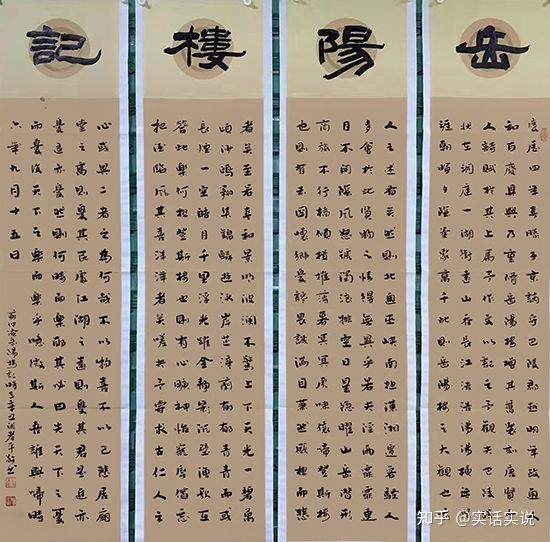 岳陽樓記
慶曆四年春滕子京謫守巴陵郡越明年政通人
和百廢具興乃重修岳陽樓增其舊制刻唐賢今
人詩賦於其上屬予作文以記之予觀夫巴陵勝
狀在洞庭一湖銜遠山吞長江浩浩湯湯橫無際
涯朝暉夕陰氣象萬千此則岳陽樓之大觀也前
人之述備矣然則北通巫峽南極瀟湘遷客騷人
多會於此覽物之情得無異乎若夫淫雨霏霏連
月不開陰風怒號濁浪排空日星隱曜山岳潛形
商旅不行檣傾楫摧薄暮冥冥虎嘯猿啼登斯樓
也則有去國懷鄉憂讒畏譏滿目蕭然感極而悲
者矣至若春和景明波瀾不驚上下天光一碧萬
頃沙鷗翔集錦鱗游泳岸芷汀蘭郁郁青青而或
長煙一空皓月千里浮光躍金靜影沉璧漁歌互
答此樂何極登斯樓也則有心曠神怡寵辱偕忘
把酒臨風其喜洋洋者矣嗟夫予嘗求古仁人之
心或異二者之為何哉不以物喜不以己悲居廟
堂之高則憂其民處江湖之遠則憂其君是進亦
憂退亦憂然則何時而樂耶其必曰先天下之憂
而憂後天下之樂而樂乎噫微斯人吾誰與歸時
六年九月十五日
岳陽樓記時
知乎 @实话实说